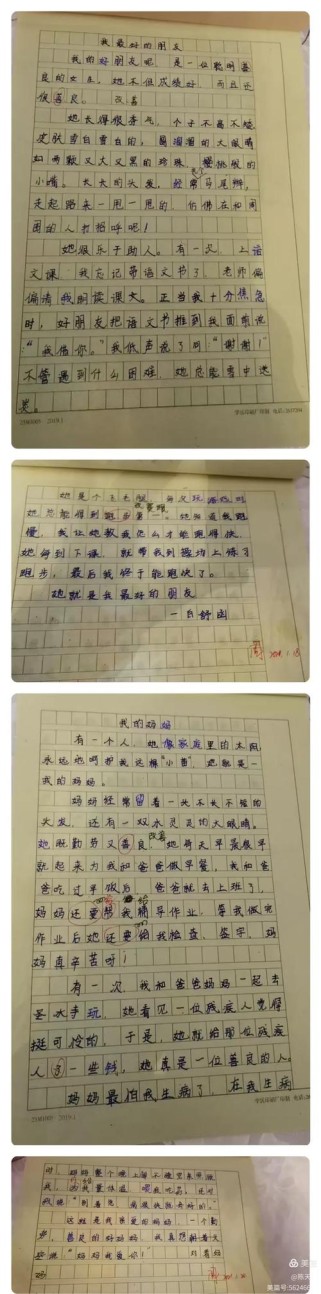 我最好的朋友
我的好朋友呢,是一位聪明善
良的女生。她不但成绩好,而且还
很善良。 改善
她长得很秀气,个子不高不矮
皮肤雪白雪白的,圆溜溜的大眼睛
如两颗又大又黑的珍珠,樱桃般的
小嘴。长长的头发,经常马尾辫,
走起路来一甩一甩的,仿佛在和周
围的人打招呼呢!
她很乐于助人。有一次,上语
文课,我忘记带语文书了,老师偏
偏请我朗读课文。正当我十分焦急
时,好朋友把语文书推到我面前说
:“我借你。”我低声说了句:“谢谢!”
不管遇到什么困难,她总能雪中送
炭。
她是个飞毛腿,每次玩游戏时
她总能得到跑步第一。她知道我跑
慢,我让她教我怎么才能跑得快,
她每到下课,就带我到操场上练习
跑步,最后我终于能跑快了。
她就是我最好的朋友
我的妈妈
有一个人,她像家庭里的太阳,
永远地呵护我这棵“小苗”,她就是—
我的妈妈。
妈妈经常留着一头不长不短的
头发,还有一双水灵灵的大眼睛。
改善
她既勤劳又善良,她每天早晨很早
就起来为我和爸爸做早餐,我和爸
爸吃过早饭后,爸爸就去上班了,
妈妈还要帮我辅导作业,等我做完
作业后她还要给我检查,签字,妈
妈真辛苦呀!
有一次,我和爸爸妈妈一起去
玩,她看见一位残疾人觉得
挺可怜的,于是,她就给那位残疾
人一些钱,她真是一位善良的人。
妈妈最怕我生病了,在我生病
这就是我我爱的妈妈,一个勤
劳,善良的好妈妈,我真想对着天
空说“妈妈我爱你!”
妈